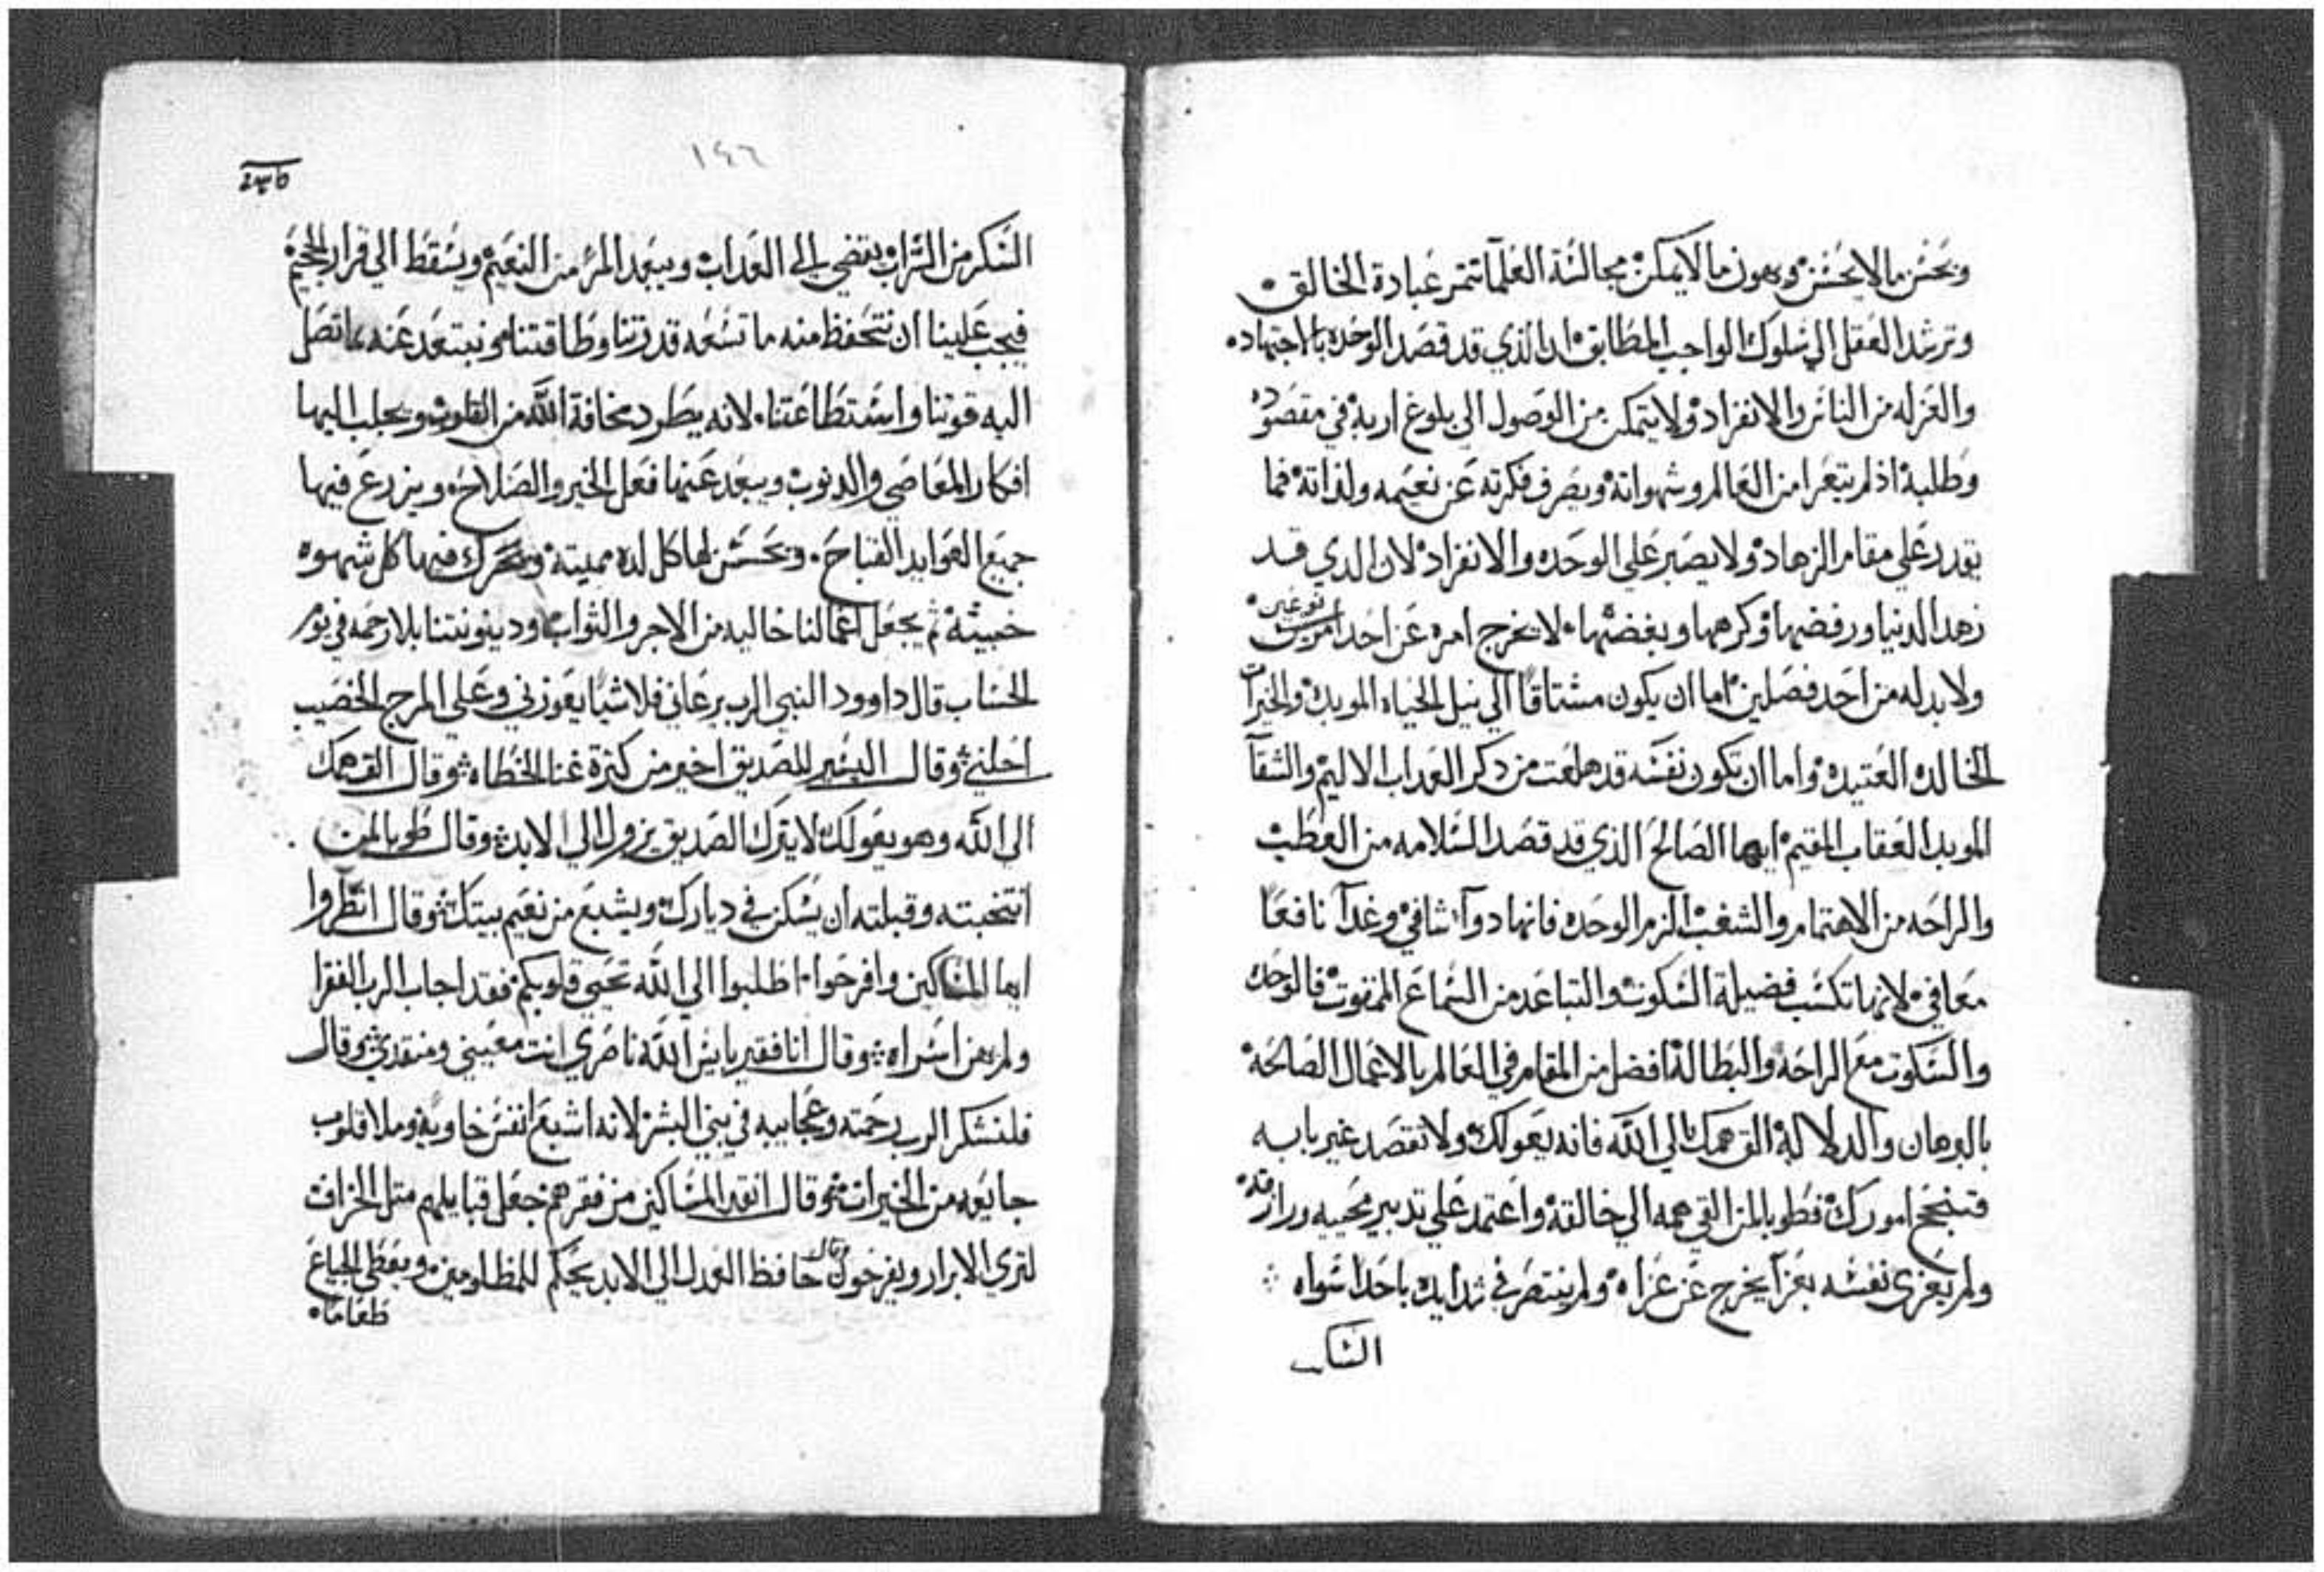 ويحسن ما لا يحسن ويهون ما لا يمكن مجالسة العلمآ تثمر عبادة الخالق
وترشد العقل الي سلوك الواجب المطابق ان الذي قد قصد الوحده بالاجتهاده
والعزله من الناس والانفراد ولا يتمكن من الوصول الي بلوغ اربه في مقصوده
وطلبة اذ لم يتعرا من العالم وشهواتة ويصرف فكرته عن نعيمه ولذاتة فما
يقدر علي مقام الزهاد ولا يصبر علي الوحده والانفراد لان الدي قد
زهد الدنيا ورفضها وكرهها وبغضها لا يخرج امره عن احد امرين
ولا بد له من احد فصلين اما ان يكون مشتاقا الي نيل الحياه الموبده والخيرات
الخالده العتيده واما ان تكون نفسه قد هلعت من دكر العداب الاليم والشقآ
الموبد العقاب المقيم ايها الصالح الذي قد قصد السلامه من العطب
والراحه من الاهتمام والشغب الزم الوحده فانها دوآ شافي وغدآ نافعا
معافي لانها تكسب فضيلة السكوت والتباعد من السماع الممقوت فالوحده
والسكوت مع الراحه والبطالة افضل من المقام في العالم بالاعمال الصالحه
بالبرهان والدلالة الق همك الي الله فانه يعولك ولا تقصد غير بابه
فتنجح امورك فطوبا لمن القي همه الي خالقة واعتمد علي تدبير محييه ورازقه
ولم يعزي نفسه بعزآ يخرج عن عزاه ولم ينتصر في شدايده باحدا سواه
السا
١٤٦
السكر من الشراب يفضي الي العداب ويبعد المر من النعيم ويسقط الي قرار الجحيم
فيجب علينا ان نتحفظ منه ما تسعه قدرتنا وطاقتنا ونبتعد عنه بما تصل
اليه قوتنا واستطاعتنا لانه يطرد مخافة الله من القلوب ويجلب اليها
افكار المعاصي والدنوب ويبعد عنها فعل الخير والصلاح ويزرع فيها
جميع العوايد القباح ويحسن لها كل لده مميتة ويحرك فيها كل شهوه
خبيثه ثم يجعل اعمالنا خاليه من الاجر والثواب ودينونتنا بلا رحمه في يوم
الحساب قال داوود النبي الرب يرعاني فلا شيا يعوزني وعلي المرج الخصيب
احلني وقال اليسير للصديق اخير من كثرة غنا الخطاه وقال الق همك
الي الله وهو يعولك لا يترك الصديق يزول الي الابد وقال طوبا لمن
انتخبته وقبلته ان يسكن في ديارك ويشبع من نعيم بيتك وقال انظروا
ايها المساكين وافرحوا اطلبوا الي الله تحيي قلوبكم فقد اجاب الرب الفقرا
ولم يهن اسراه وقال انا فقير بايس الله ناصري انت معيني ومنقدي وقال
فلنشكر الرب رحمته وعجايبه في بني البشر لانه اشبع انفس خاويه وملا قلوب
جايعه من الخيرات وقال انقد المساكين من فقرهم جعل قبايلهم متل الخراف
لتري الابرار ويفرحون وقال حافظ العدل الي الابد يحكم للمظلومين ويعطي الجياع
طعاما